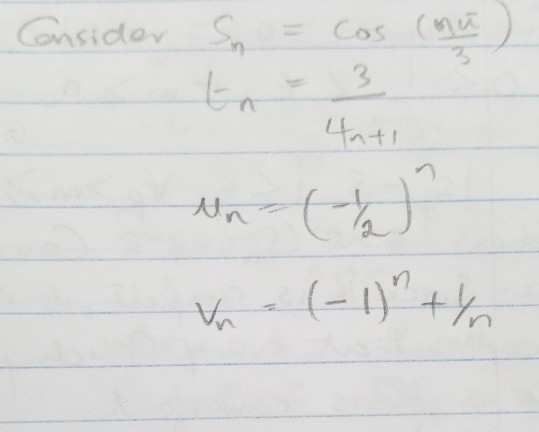 Consider Sn = cos (nπ/3)
tn = 3/4n+1
un = (-1/2)^n
Vn = (-1)^n + 1/n